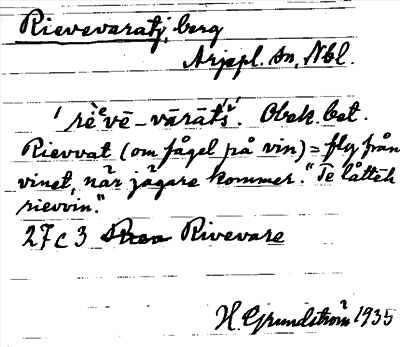 Rievevaratj, berg
Arjepl. sn, Nbl.
'rèᵉvē-vārāt́s'. Obek. bet.
Rievvat (om fågel på vin) = fly från
vinet, när jägare kommer. "Te låtteh
rievvin."
27C3 Rivevare
H. Grundström 1935